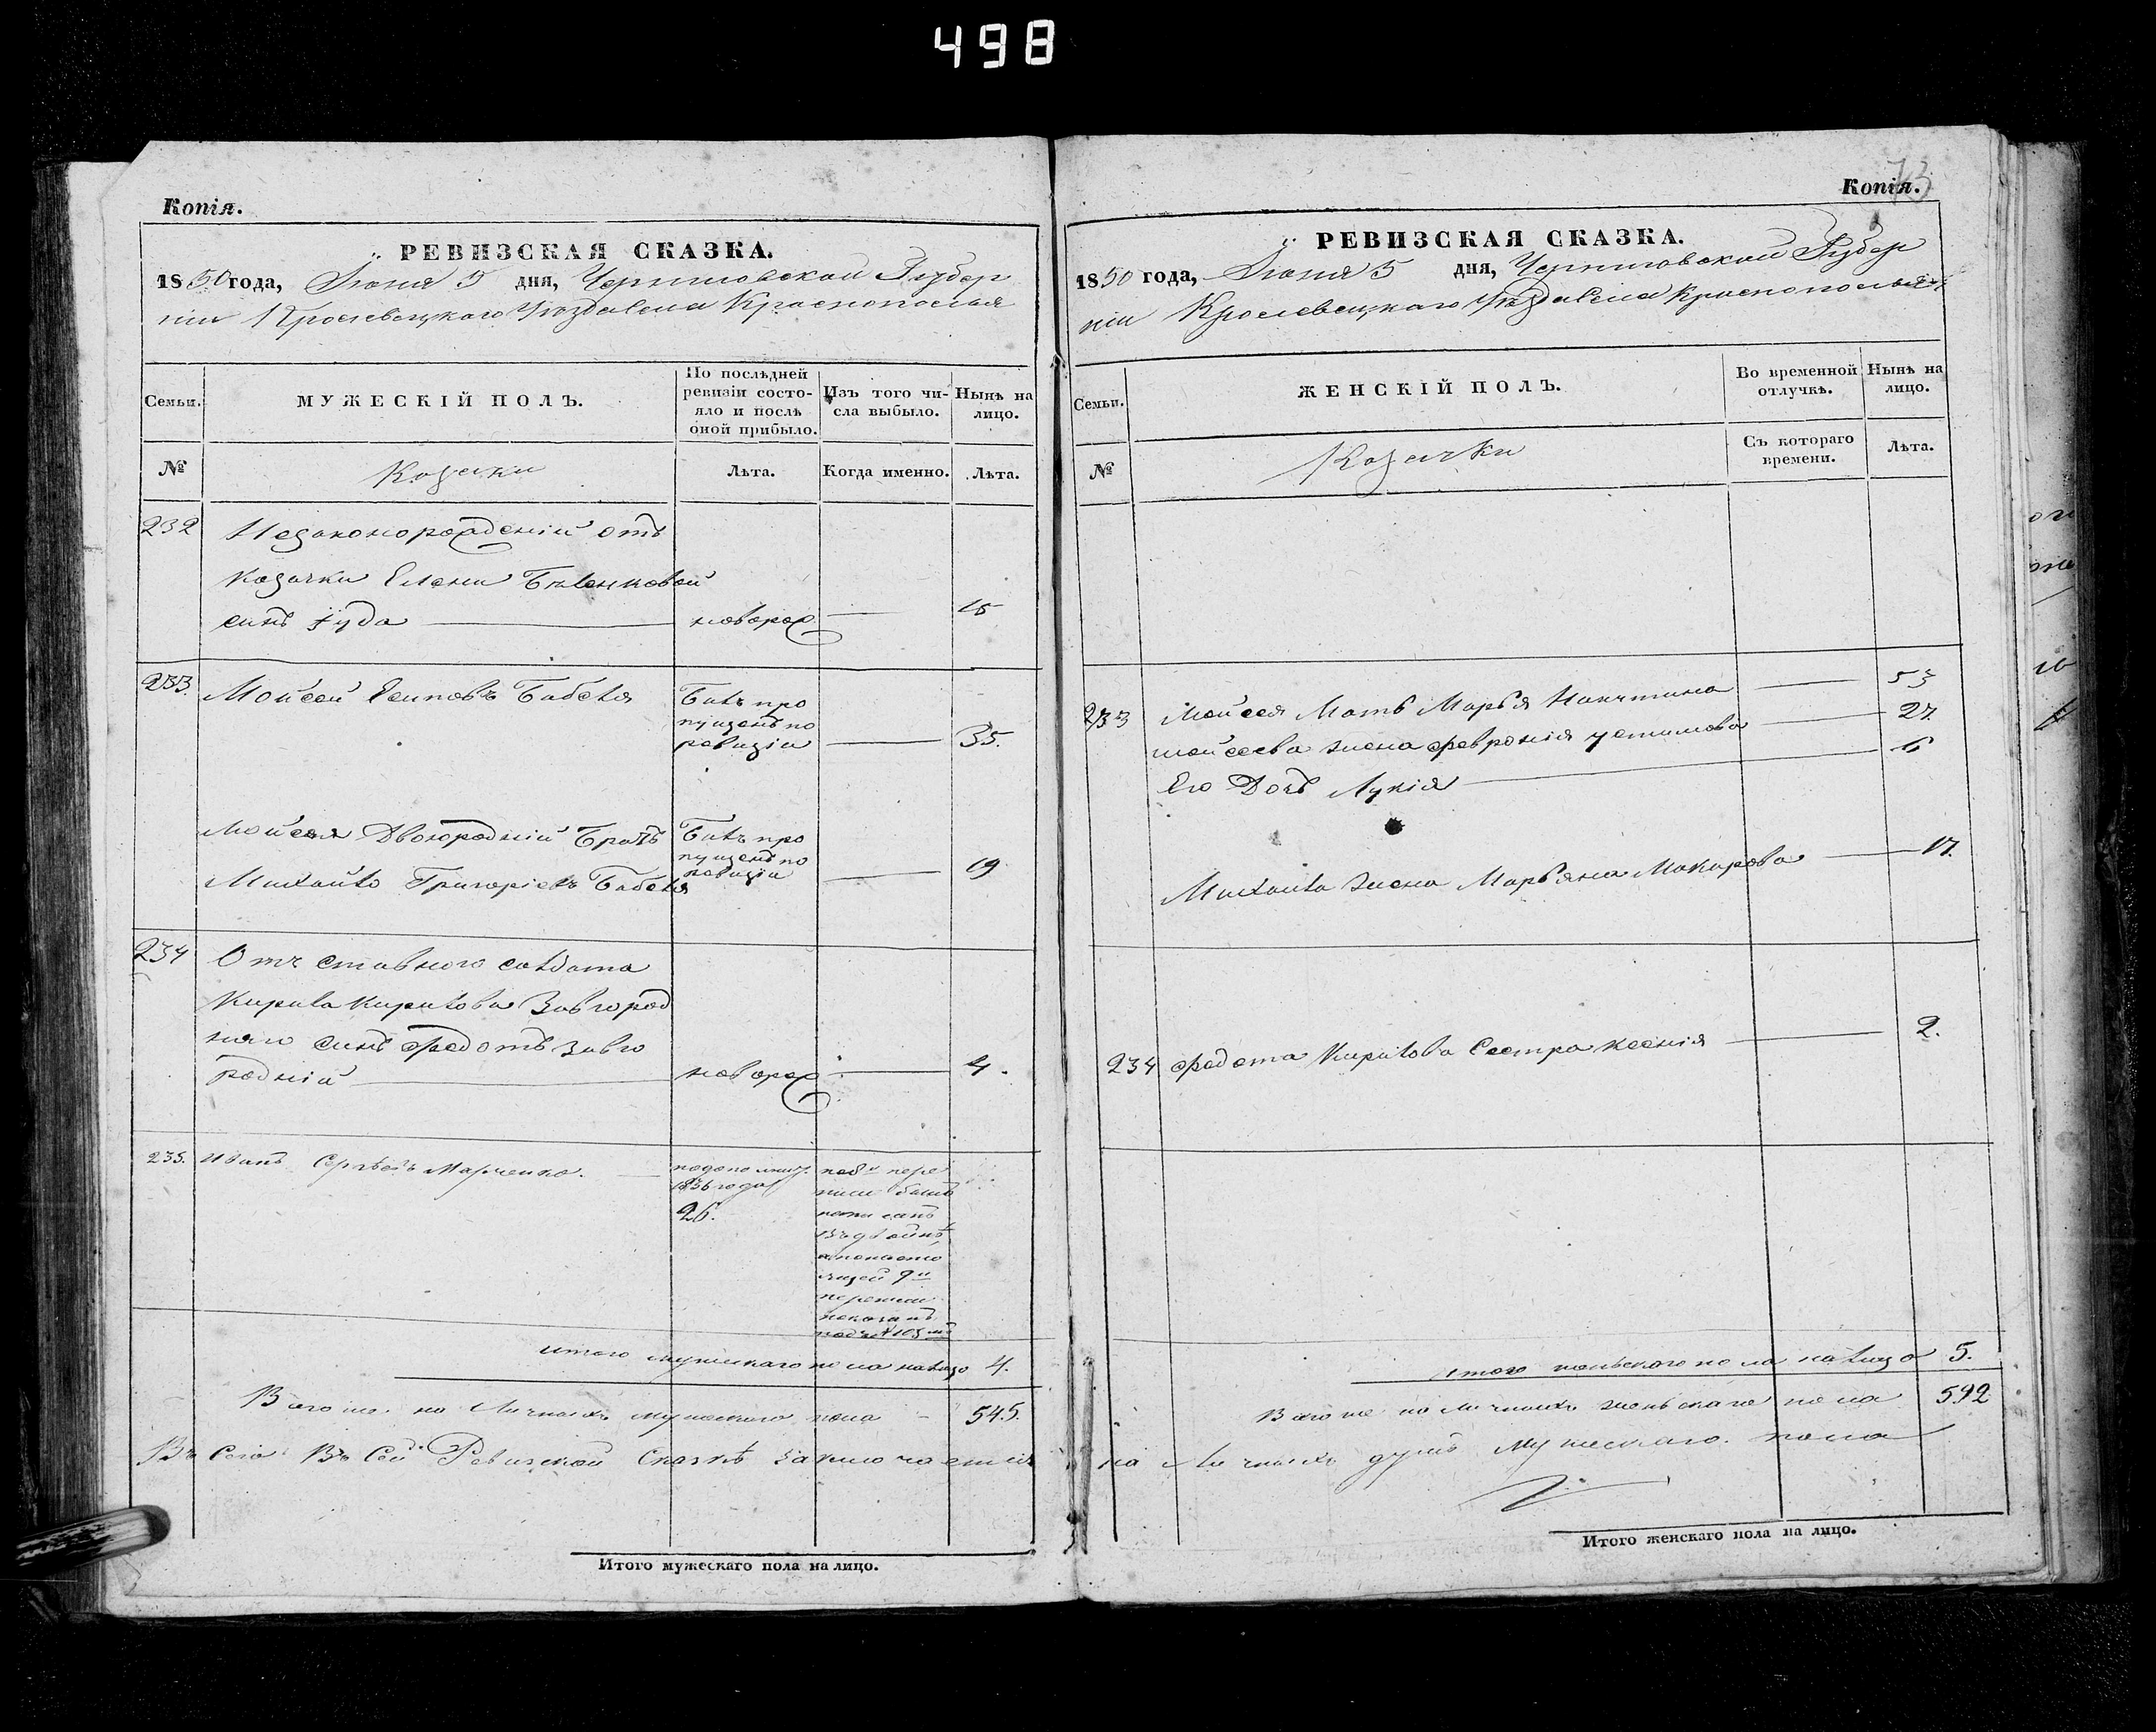 498
Копія.
РЕВИЗСКАЯ СКАЗКА.
1850 года, Іюня 5 дня, Черниговской Губер
ніи Кролевецкаго Уѣзда села Краснополья
Семьи.
МУЖЕСКІЙ ПОЛЪ.
По послѣдней ревизіи состояло и послѣ оной прибыло.
Изъ того числа выбыло.
Нынѣ на лицо.
№
Козаки
Лѣта.
Когда именно.
Лѣта.
232
Незаконорожденій отъ
козачки Елени Бѣленковой
синъ Іуда новорож 15
233. Мойсей Есиповъ Бабеля
Билъ про
пущенъ по
ревизіи 35.
Мойсея Двоюродній Братъ
Михайло Григоріевъ Бабеля
Билъ про
пущенъ по
ревизіи 19
234 Отставного солдата
Кирила Кирилова Завгород
няго синъ Федотъ Завго
родній новорож 4.
235. Иванъ Сергѣевъ Марченко.
1836 года
26.
по 8й пере
писи билъ
9й
показанъ
итого мужескаго пола налицо 4.
Всего же на личныхъ мужескаго пола 545.
Въ сего Въ Сей Ревизской Сказкѣ заключается
Итого мужескаго пола на лицо.
73
Копія.
РЕВИЗСКАЯ СКАЗКА.
1850 года, Іюня 5 дня, Черниговской Губер
ніи Кролевецкаго Уѣзда села Краснополья
Семьи.
ЖЕНСКІЙ ПОЛЪ.
Во временной отлучкѣ.
Нынѣ на лицо.
№
Козачки
Съ котораго времени.
Лѣта.
233 Мойсея Мать Марья Никитина 53
Мойсеева жена Февронія Устимова 27.
Его Дочь Лукія 6
Михайла жена Марьяна Макарова 17.
234 Федота Кирилова Сестра Ксенія 2.
итого женьскаго пола налицо 5.
Всего же на личныхъ женьскаго пола 592
на личныхъ душъ мужескаго пола
Итого женскаго пола на лицо.